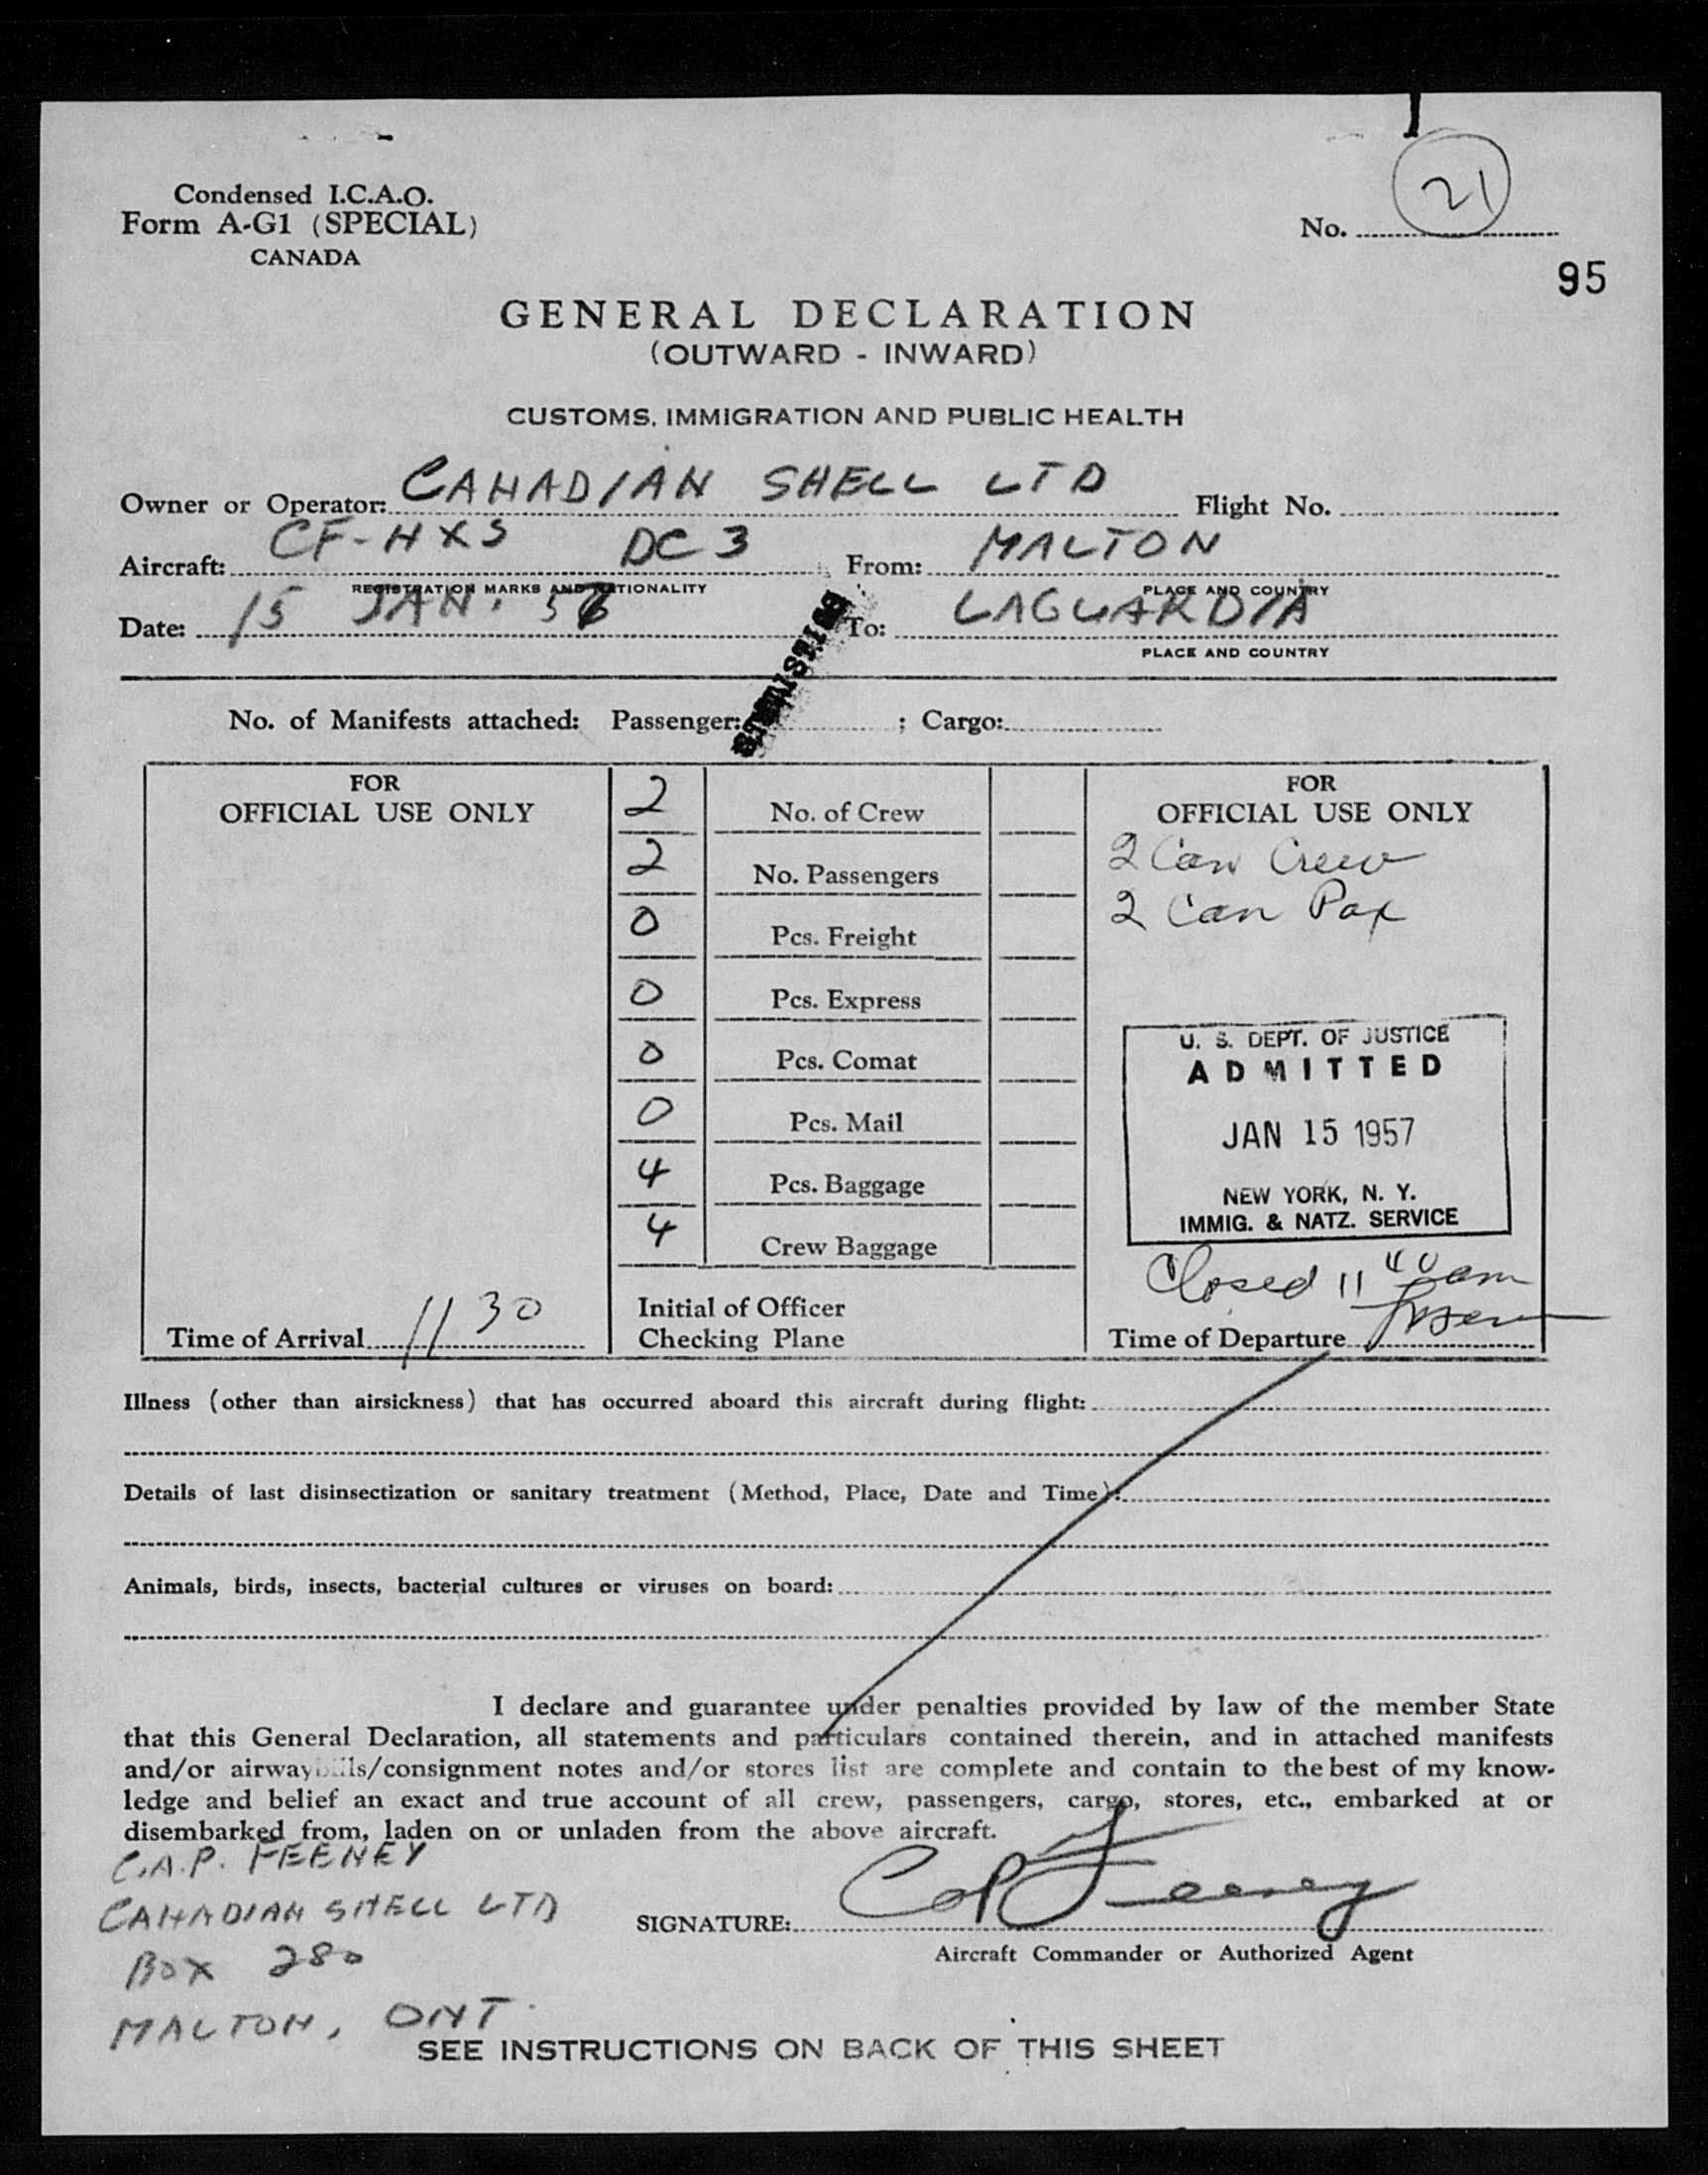 Condensed I.C.A.O.
Form A-G1 (SPECIAL)
CANADA
No. 21
95
GENERAL DECLARATION
(OUTWARD - INWARD)
CUSTOMS, IMMIGRATION AND PUBLIC HEALTH
Owner or Operator: CANADIAN SHELL LTD Flight No.
Aircraft: CF-HXS DC3 From: MALTON
REGISTRATION MARKS AND NATIONALITY PLACE AND COUNTRY
Date: 15 JAN. To: LAGUARDIA
PLACE AND COUNTRY
STATISTICS
No. of Manifests attached: Passenger: ; Cargo:
FOR
OFFICIAL USE ONLY
Time of Arrival 11 30
2 No. of Crew
2 No. Passengers
0 Pcs. Freight
0 Pcs. Express
0 Pcs. Comat
0 Pcs. Mail
4 Pcs. Baggage
4 Crew Baggage
Initial of Officer
Checking Plane
FOR
OFFICIAL USE ONLY
2 Can Crew
2 Can Pax
U. S. DEPT. OF JUSTICE
ADMITTED
JAN 15 1957
NEW YORK, N. Y.
IMMIG. & NATZ. SERVICE
Closed 11 40 am
Time of Departure
Illness (other than airsickness) that has occurred aboard this aircraft during flight:
Details of last disinsectization or sanitary treatment (Method, Place, Date and Time):
Animals, birds, insects, bacterial cultures or viruses on board:
I declare and guarantee under penalties provided by law of the member State
that this General Declaration, all statements and particulars contained therein, and in attached manifests
and/or airwaybills/consignment notes and/or stores list are complete and contain to the best of my know-
ledge and belief an exact and true account of all crew, passengers, cargo, stores, etc., embarked at or
disembarked from, laden on or unladen from the above aircraft.
C.A.P. FEENEY
CANADIAN SHELL LTD
BOX 280
MALTON, ONT.
SIGNATURE: CAP Feeney
Aircraft Commander or Authorized Agent
SEE INSTRUCTIONS ON BACK OF THIS SHEET